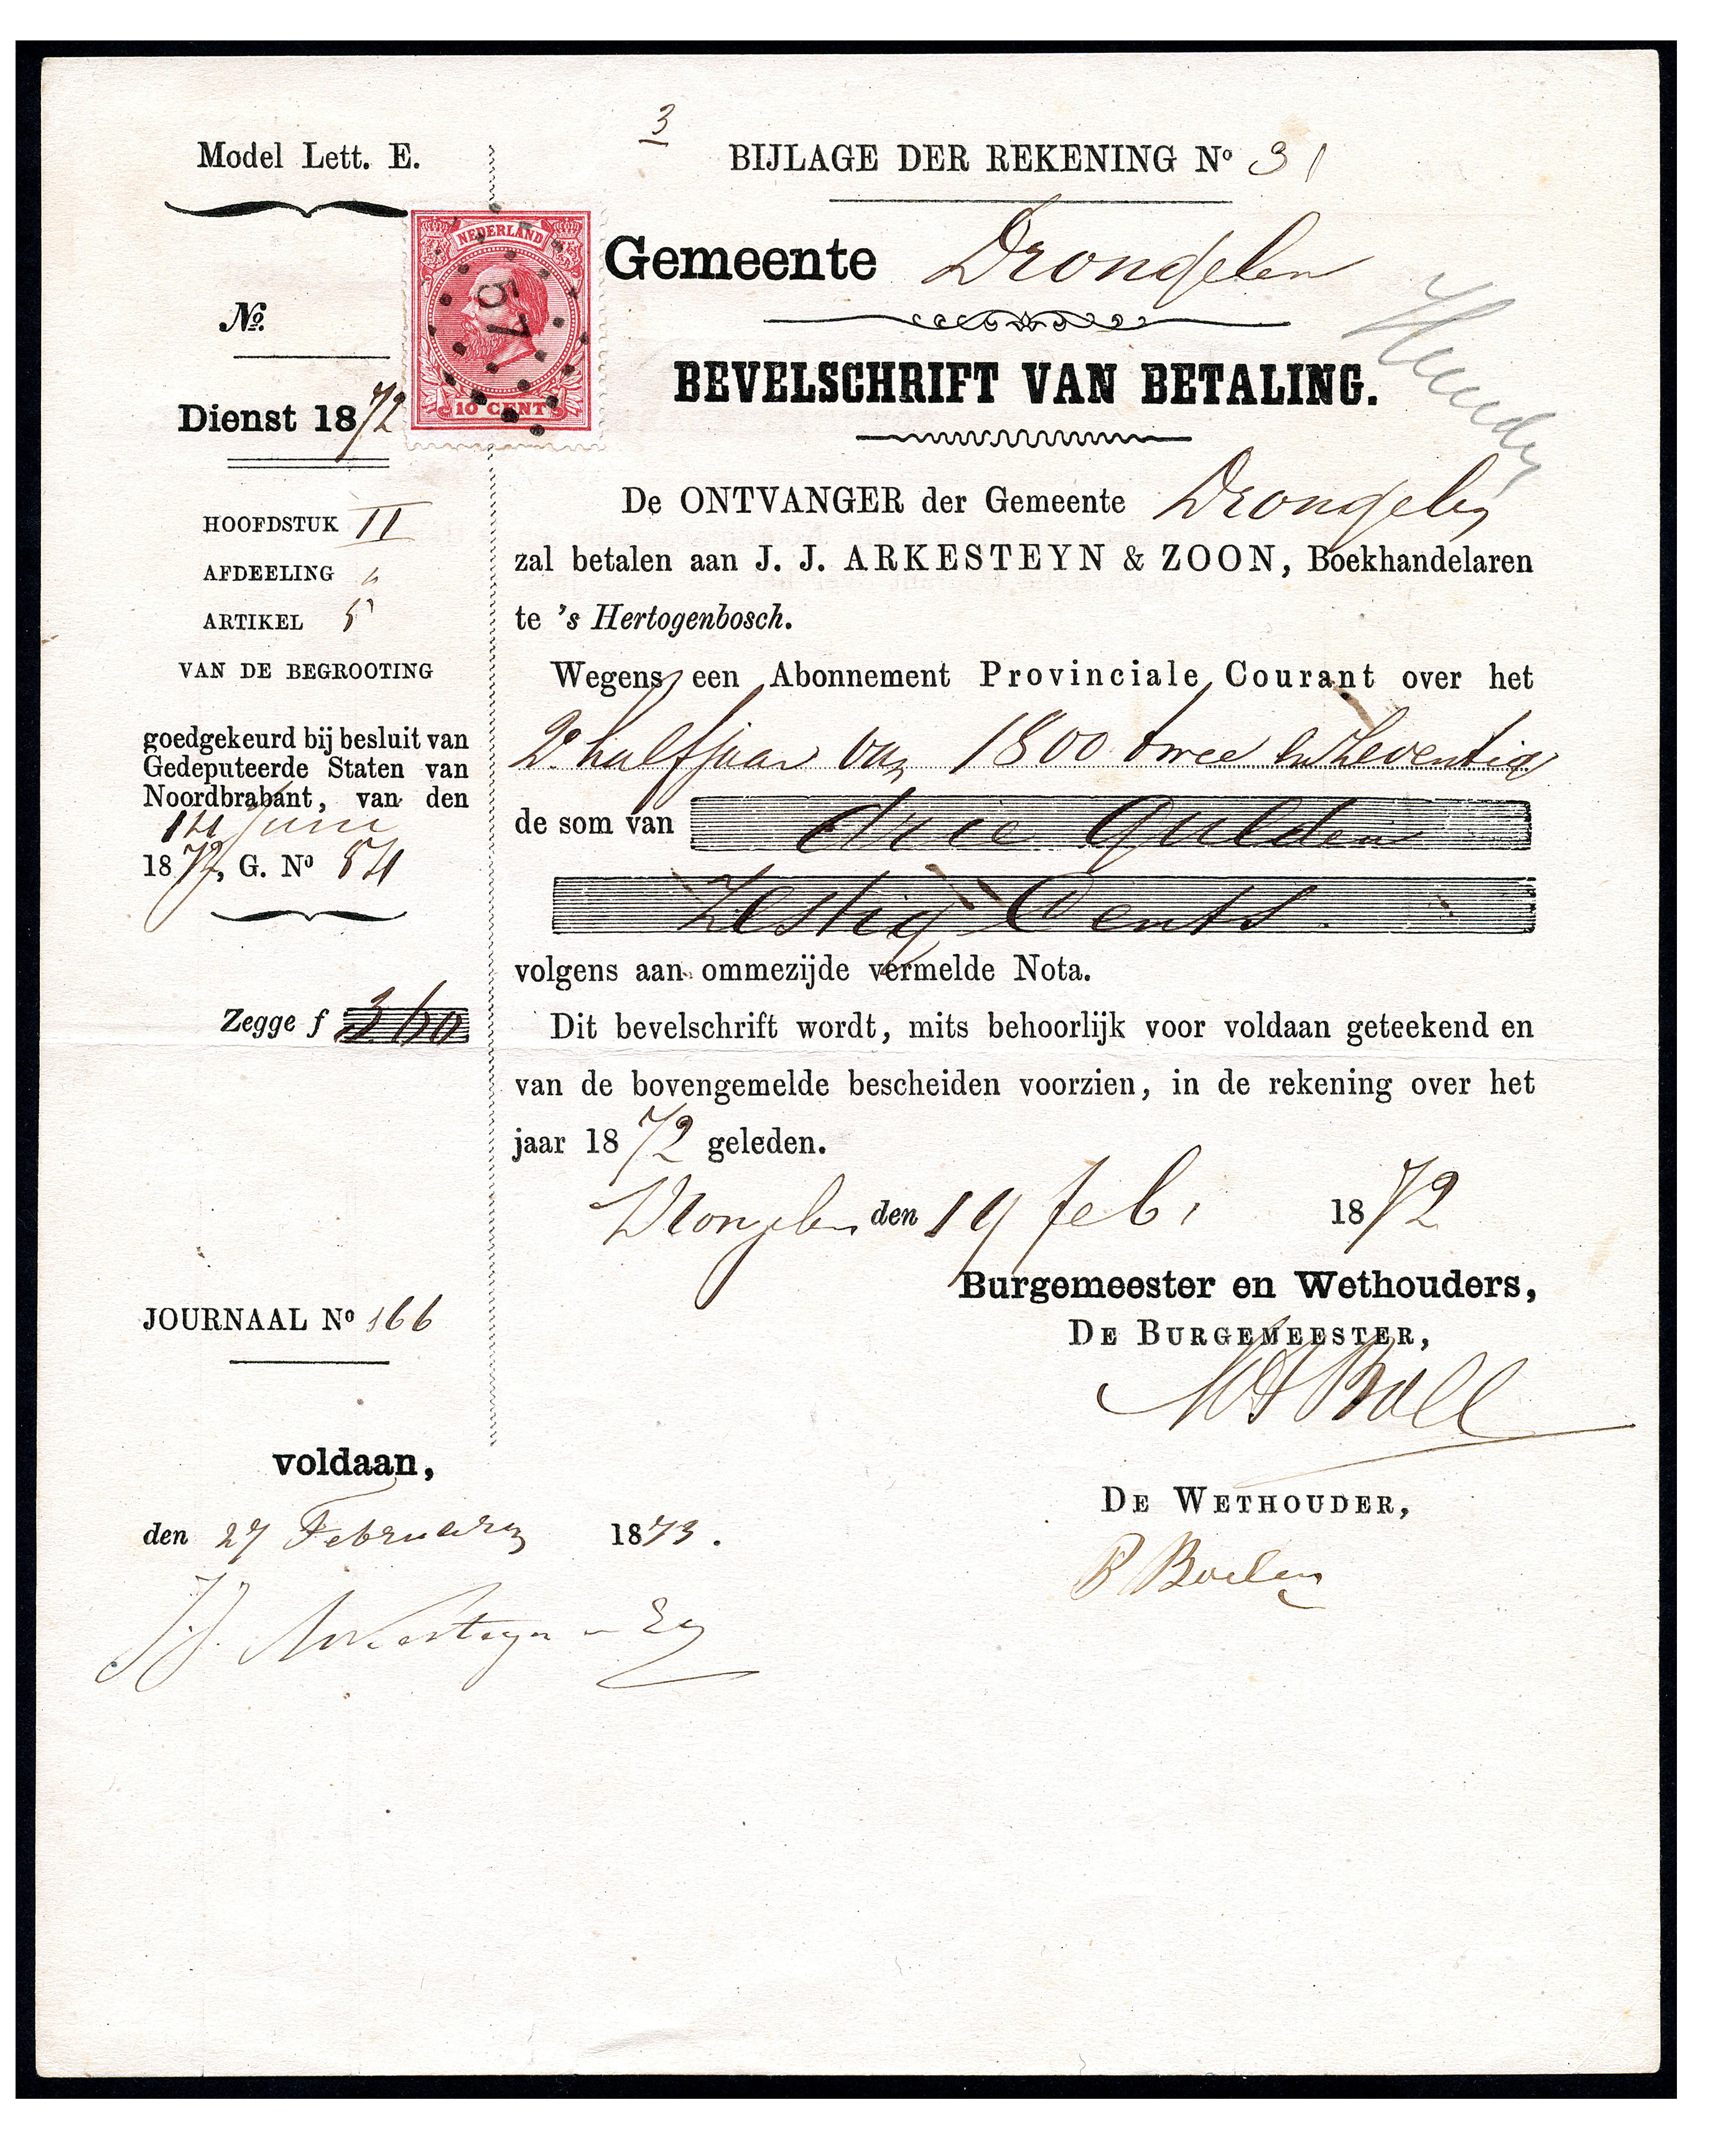 3
Model Lett. E.
BIJLAGE DER REKENING No 31
NEDERLAND
57
10 CENT
Gemeente Drongelen
No.
Dienst 1872
BEVELSCHRIFT VAN BETALING.
HOOFDSTUK II
AFDEELING "
ARTIKEL 5
VAN DE BEGROOTING
goedgekeurd bij besluit van
Gedeputeerde Staten van
Noordbrabant, van den
14 Juni
1872, G. No 54
Zegge f 3.60
JOURNAAL No 166
De ONTVANGER der Gemeente Drongelen
zal betalen aan J. J. ARKESTEYN & ZOON, Boekhandelaren
te 's Hertogenbosch.
Wegens een Abonnement Provinciale Courant over het
2e halfjaar van 1800 twee en zeventig
de som van drie Gulden
Zestig Cents.
volgens aan ommezijde vermelde Nota.
Dit bevelschrift wordt, mits behoorlijk voor voldaan geteekend en
van de bovengemelde bescheiden voorzien, in de rekening over het
jaar 1872 geleden.
Drongelen den 19 feb. 1872
Burgemeester en Wethouders,
DE BURGEMEESTER,
voldaan,
DE WETHOUDER,
den 27 February 1873.
J.J. Arkesteyn en Zn